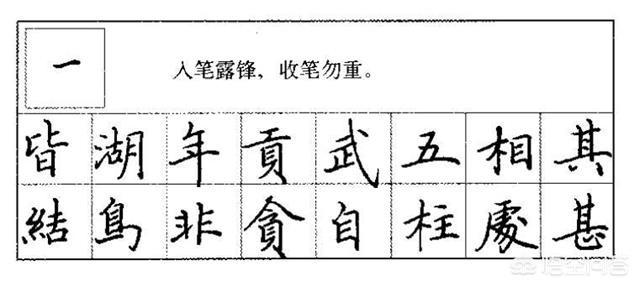 一 入笔露锋，收笔勿重。
皆 湖 年 貢 武 五 相 其
結 島 非 貪 自 柱 處 甚
悟空问答